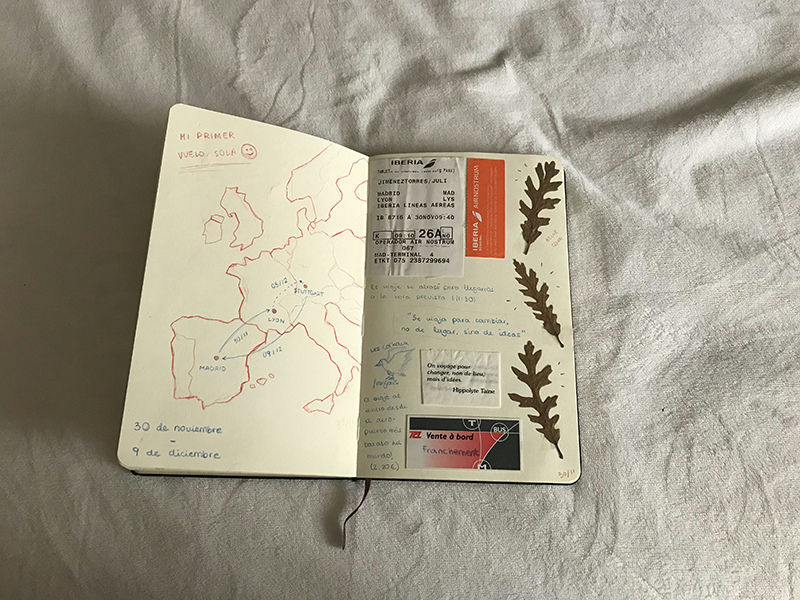 MI PRIMER
VUELO SOLA
05/12
STUTTGART
LYON
30/11
MADRID
09/12
30 de noviembre
-
9 de diciembre
IBERIA
JIMENEZTORRES/JULI
MADRID MAD
LYON LYS
IBERIA LINEAS AEREAS
IB 8716 A 30NOV09:40
K 09:10 26A NO
OPERADOR AIR NOSTRUM
067
MAD-TERMINAL 4
ETKT 075 2387299694
IBERIA AIRNOSTRUM
El viaje se atrasó pero llegamos
a la hora prevista (11:30)
"Se viaja para cambiar,
no de lugar, sino de ideas"
On voyage pour
changer, non de lieu,
mais d'idées.
Hippolyte Taine
El viaje al
centro desde
el aero-
puerto más
barato del
mundo!
(2.20€)
TCL Vente à bord
Franchement
T
BUS
M
30/11